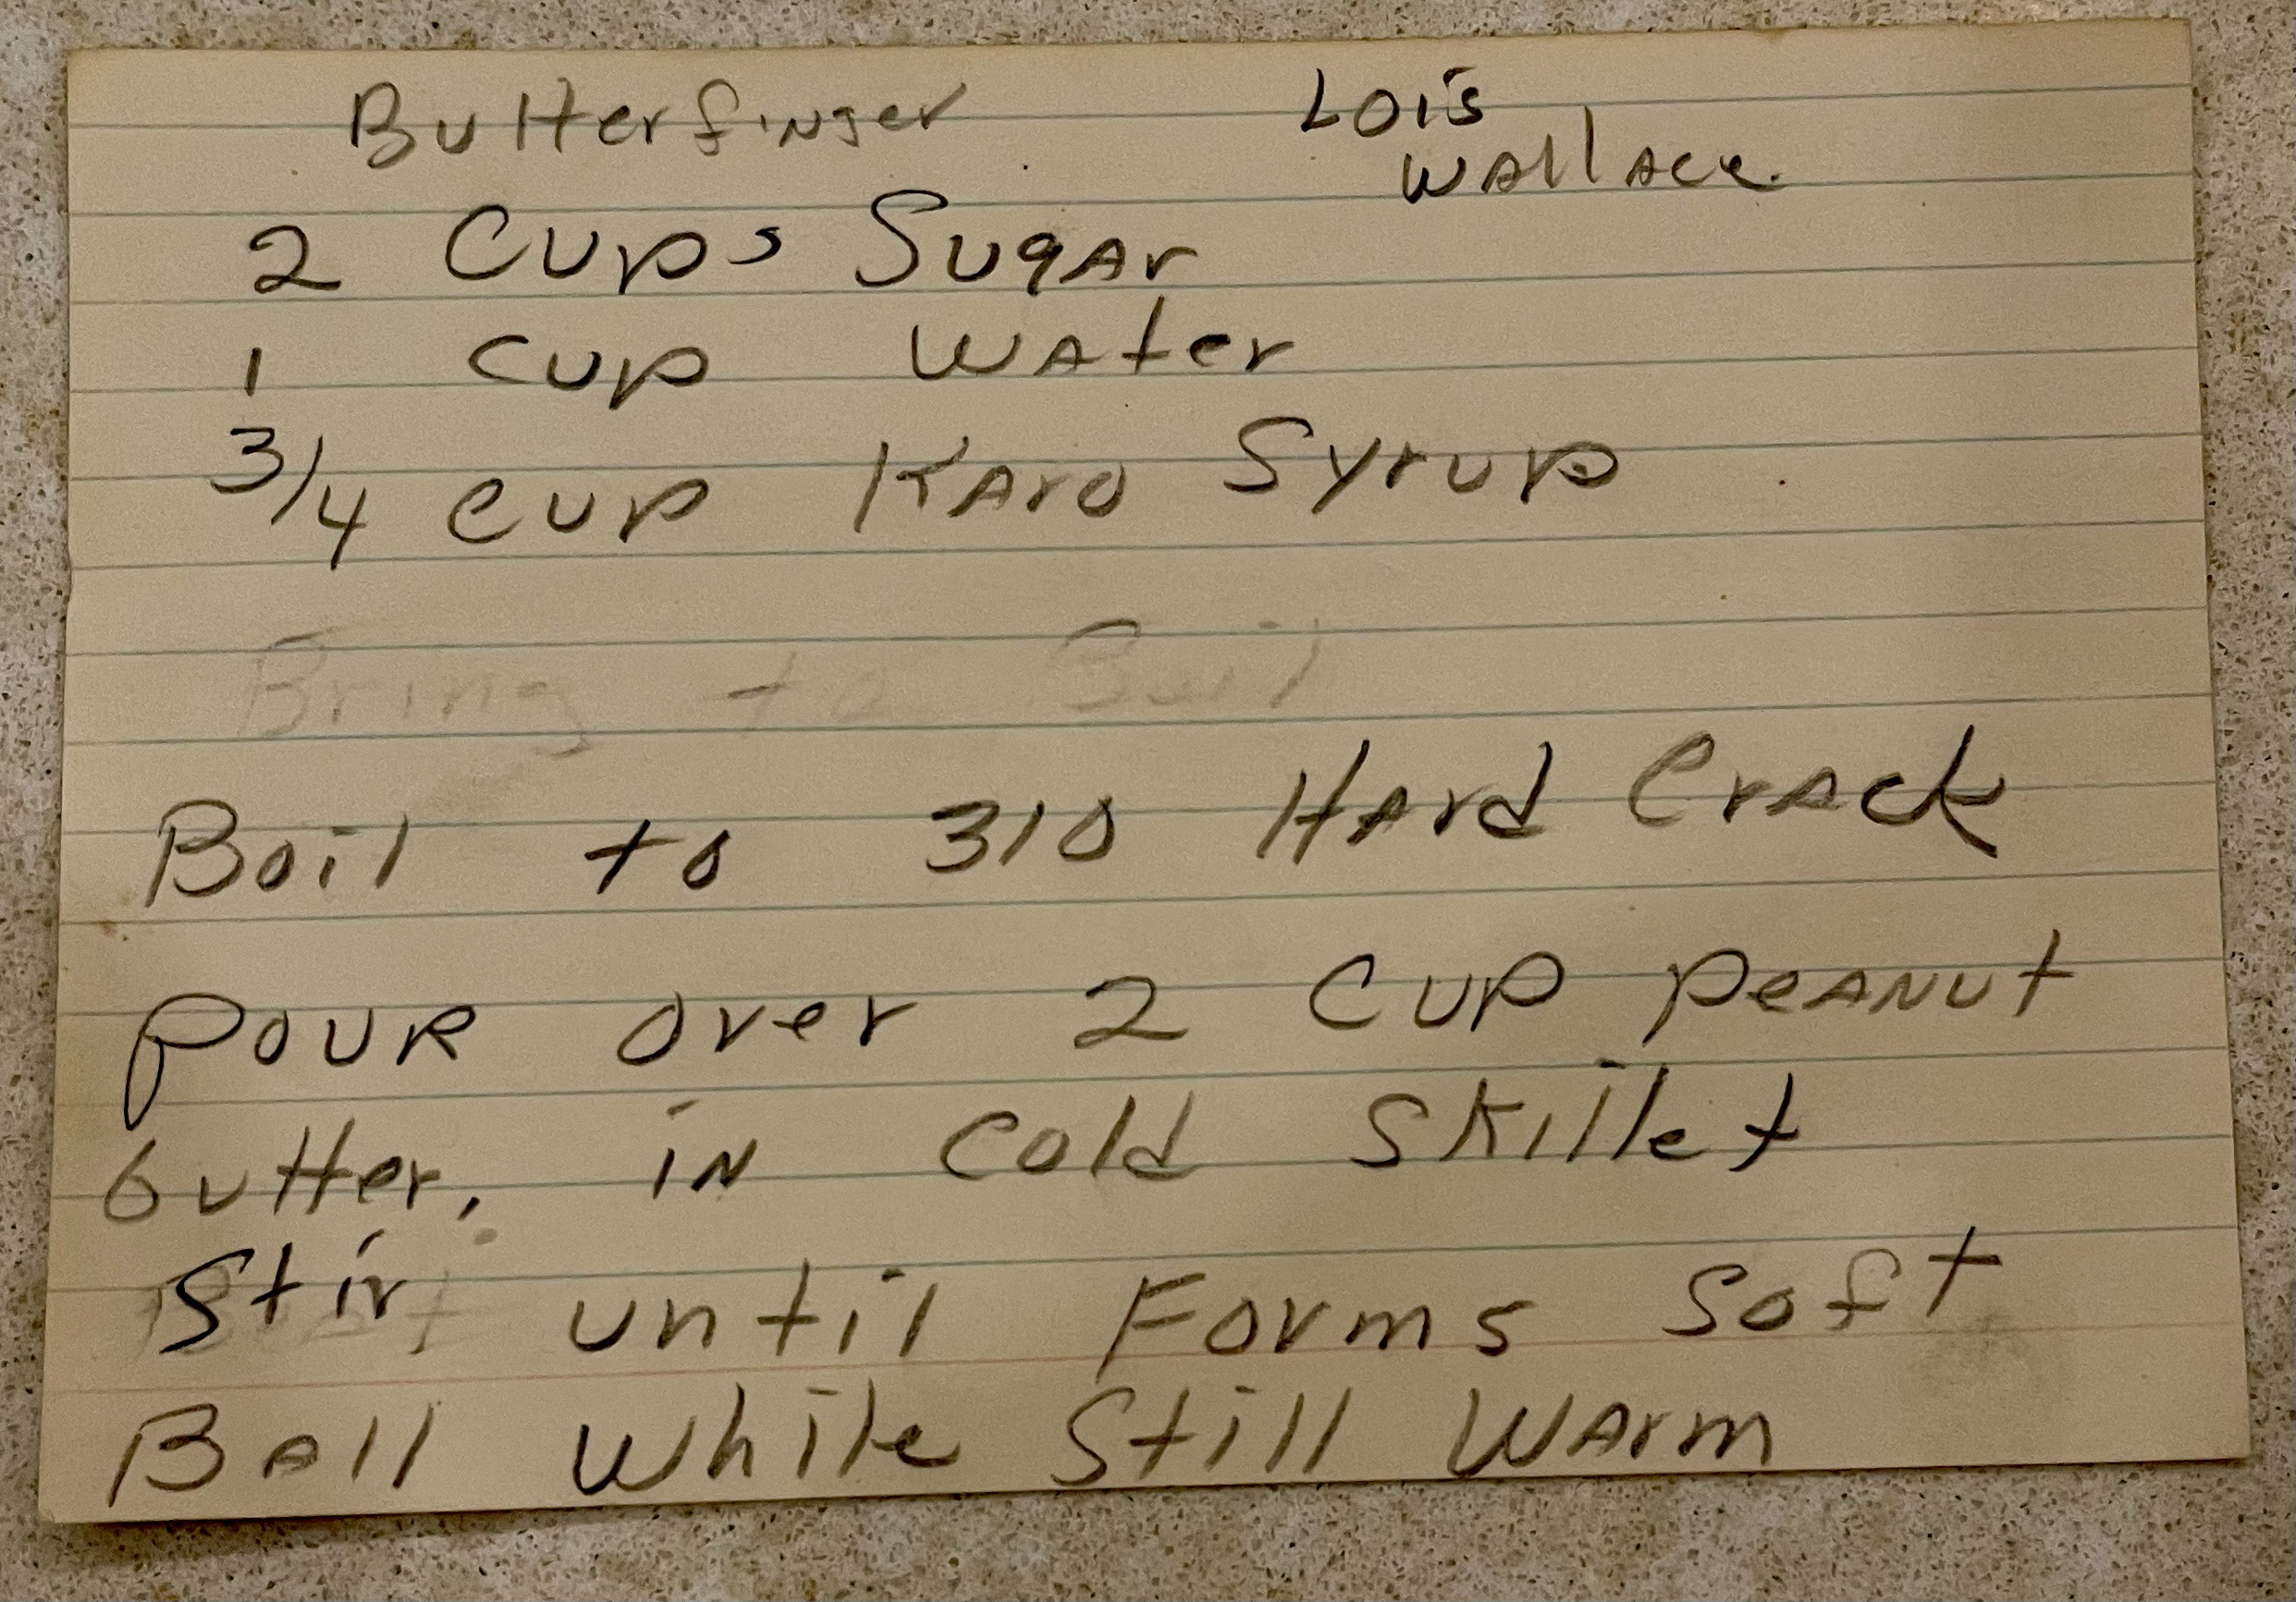 Butterfinger
Lois
Wallace
2 Cups Sugar
1 cup water
3/4 cup Karo Syrup
Bring to Boil
Boil to 310 Hard Crack
Pour over 2 Cup peanut
butter, in cold skillet
Stir until Forms Soft
Ball while Still Warm